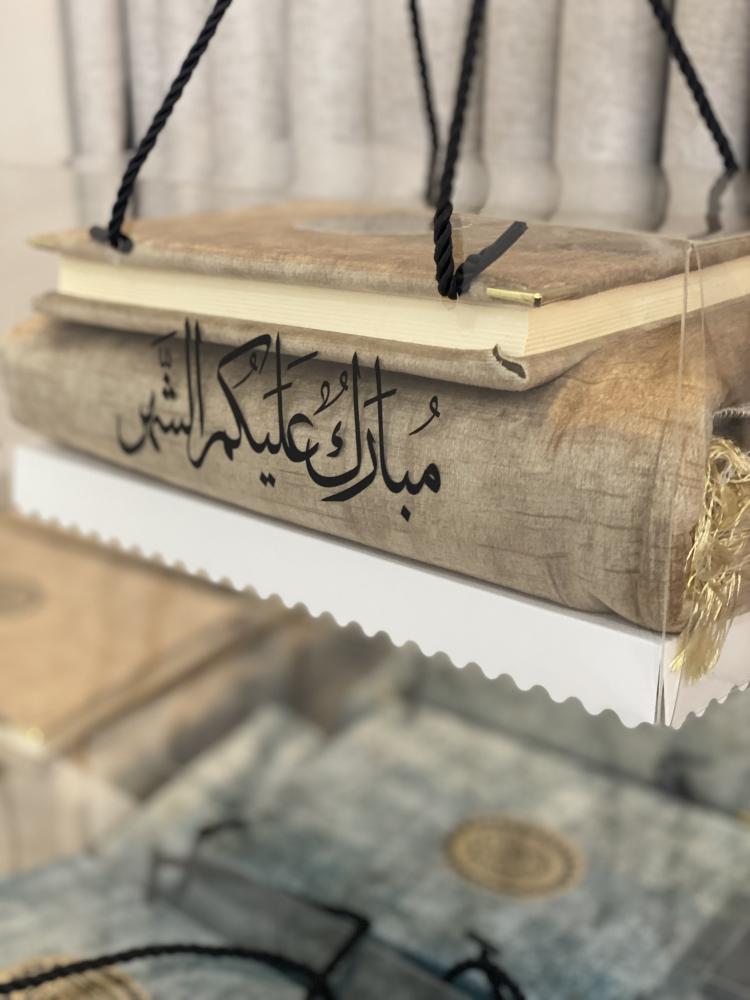 مُباركٌ عليكُم الشَّهر